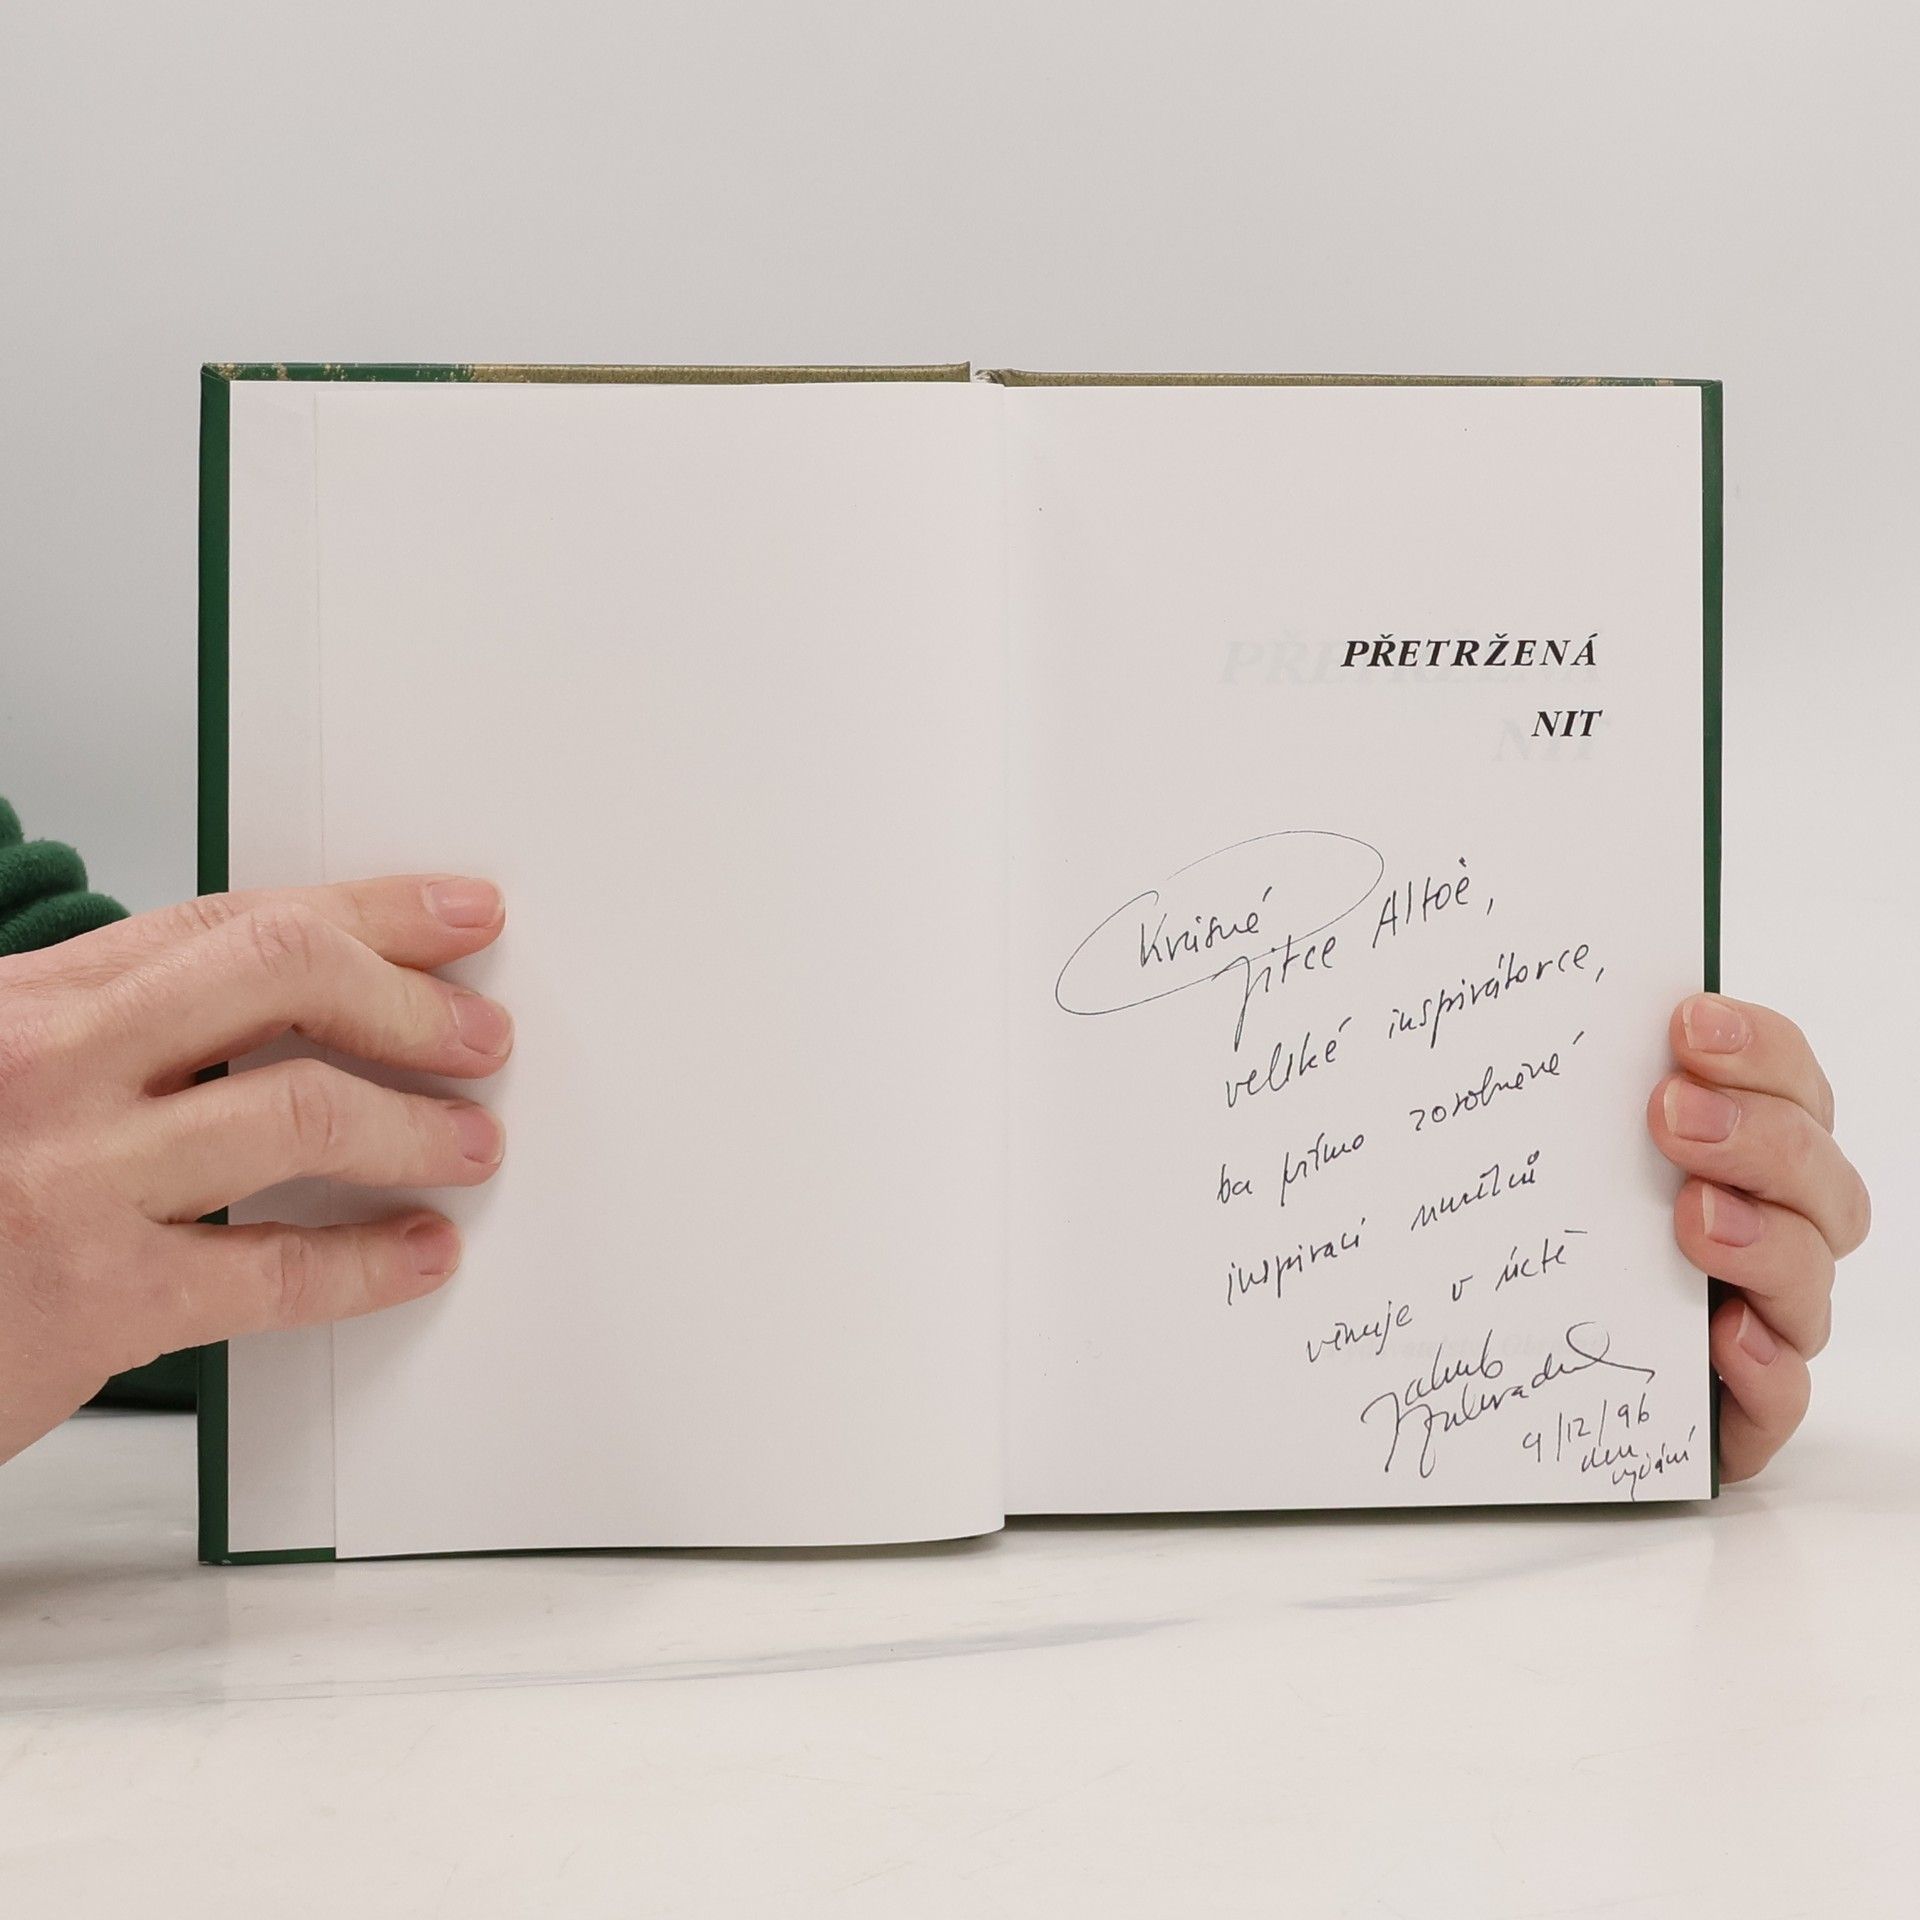 PŘETRŽENÁ
NIT
Krásné
Jitce Altoè,
veliké inspirátorce,
ba přímo
inspiraci
věnuje v úctě
Jakub
9/12/96
den
vydání